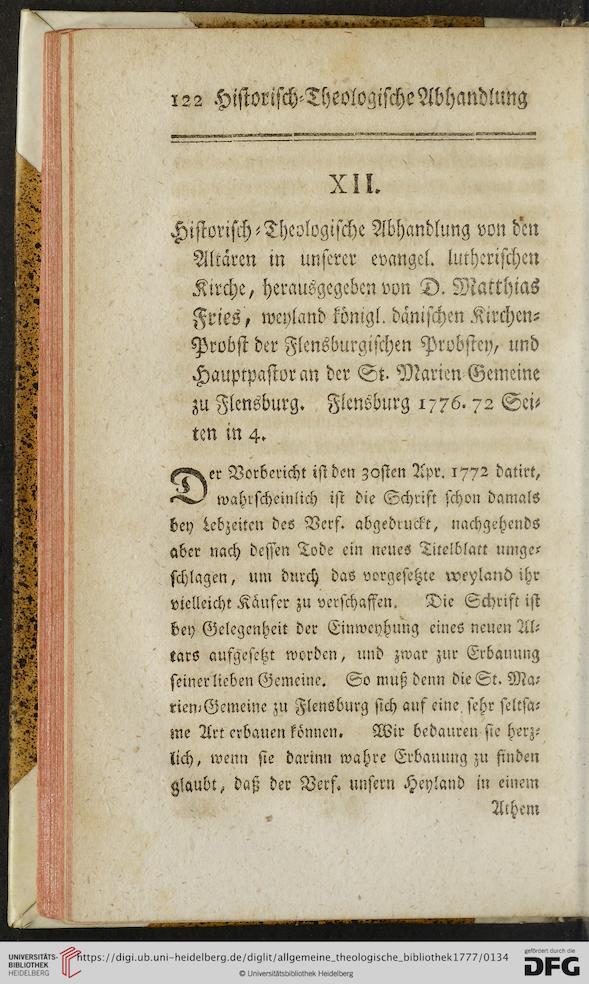 122 Historisch-Theologische Abhandlung
XII.
Historisch-Theologische Abhandlung von den
Altären in unserer evangel. lutherischen
Kirche, herausgegeben von D. Matthias
Fries, weyland königl. dänischen Kirchen-
Probst der Flensburgischen Probstey, und
Hauptpastor an der St. Marien Gemeine
zu Flensburg. Flensburg 1776. 72 Sei-
ten in 4.
Der Vorbericht ist den 30sten Apr. 1772 datirt,
wahrscheinlich ist die Schrift schon damals
bey Lebzeiten des Verf. abgedruckt, nachgehends
aber nach dessen Tode ein neues Titelblatt umge-
schlagen, um durch das vorgesetzte weyland ihr
vielleicht Käufer zu verschaffen. Die Schrift ist
bey Gelegenheit der Einweyhung eines neuen Al-
tars aufgesetzt worden, und zwar zur Erbauung
seiner lieben Gemeine. So muß denn die St. Ma-
rien-Gemeine zu Flensburg sich auf eine sehr seltsa-
me Art erbauen können. Wir bedauren sie herz-
lich, wenn sie darinn wahre Erbauung zu finden
glaubt, daß der Verf. unsern Heyland in einem
Athem
UNIVERSITÄTS-
BIBLIOTHEK
HEIDELBERG
https://digi.ub.uni-heidelberg.de/diglit/allgemeine_theologische_bibliothek1777/0134
© Universitätsbibliothek Heidelberg
gefördert durch die
DFG